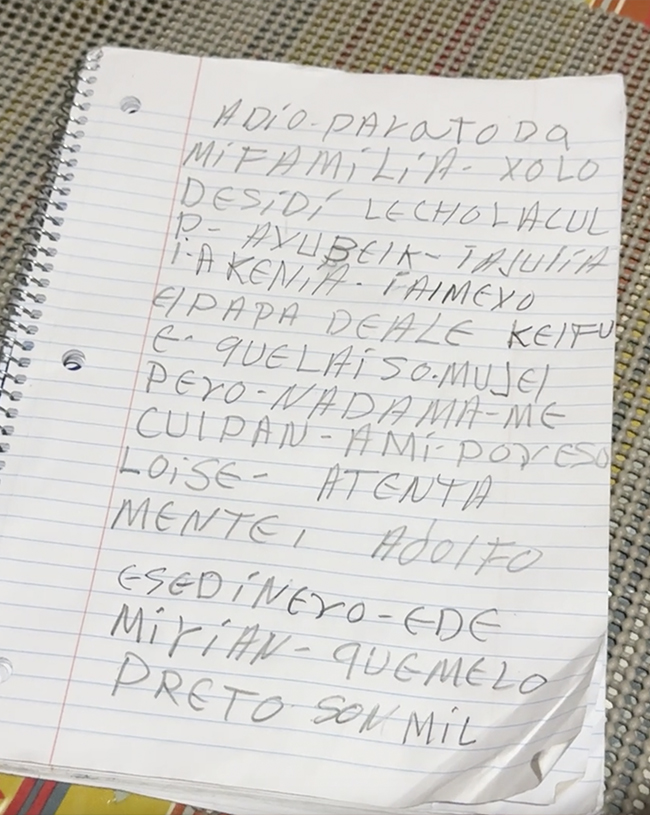 ADIO-PARATODA
MIFAMILIA- XOLO
DESIDI LECHOLACUL
P- AYUBEIK- IAJULIA
I-A KENIA- IAIMEXO
EIPAPA DEALE KEIFU
E- QUELAISO.MUJEI
PERO-NADAMA-ME
CUIPAN-AMI-PORESO
LOISE- ATENTA
MENTE, ADOLFO
ESEDINERO-EDE
MIRIAN- QUEMELO
PRETO SON MIL